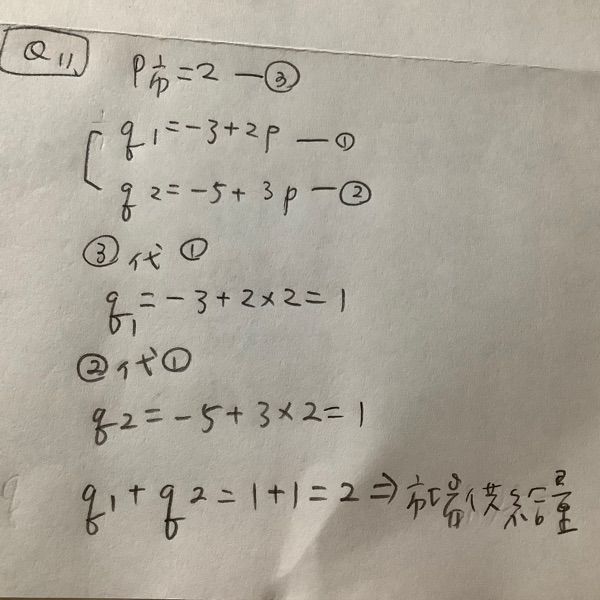 Q11
P市=2—③
q1=-3+2p—①
q2=-5+3p—②
③代①
q1=-3+2×2=1
②代①
q2=-5+3×2=1
q1+q2=1+1=2⇒市場供給量